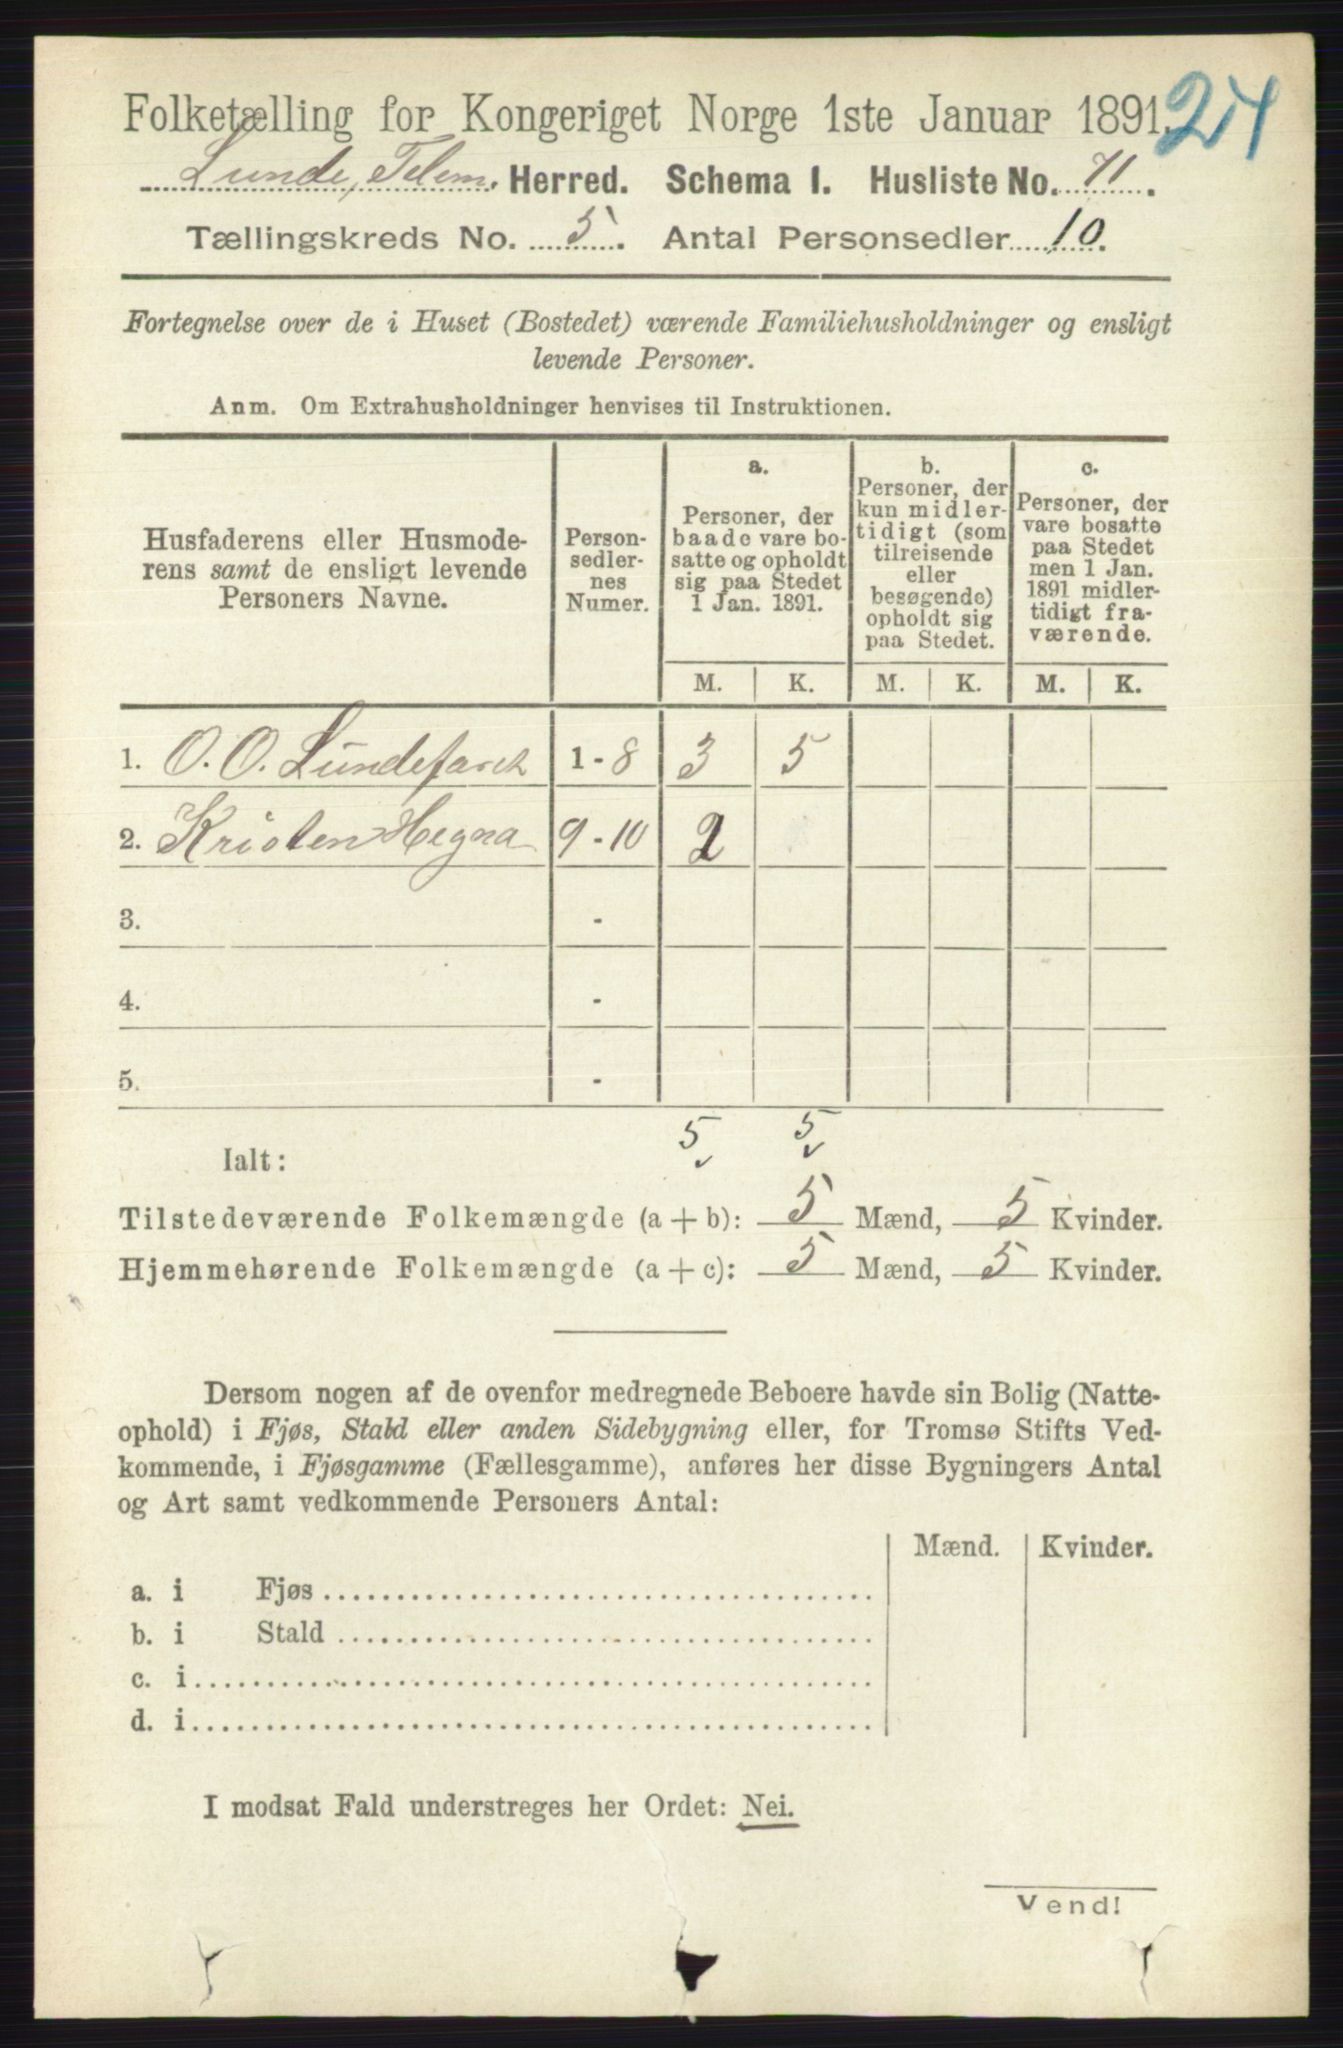 Folketælling for Kongeriget Norge 1ste Januar 1891.
24
Lunde, Telem. Herred. Schema I. Husliste No. 71.
Tællingskreds No. 5. Antal Personsedler 10.
Fortegnelse over de i Huset (Bostedet) værende Familiehusholdninger og ensligt
levende Personer.
Anm. Om Extrahusholdninger henvises til Instruktionen.
Husfaderens eller Husmode-
rens samt de ensligt levende
Personers Navne.
Person-
sedler-
nes
Numer.
a.
Personer, der
baade vare bo-
satte og opholdt
sig paa Stedet
1 Jan. 1891.
b.
Personer, der
kun midler-
tidigt (som
tilreisende
eller
besøgende)
opholdt sig
paa Stedet.
c.
Personer, der
vare bosatte
paa Stedet
men 1 Jan.
1891 midler-
tidigt fra-
værende.
M. K. M. K. M. K.
1. O. O. Lundefaret 1-8 3 5
2. Kristen Hegna 9-10 2
3. -
4. -
5. -
Ialt: 5 5
Tilstedeværende Folkemængde (a + b): 5 Mænd, 5 Kvinder.
Hjemmehørende Folkemængde (a + c): 5 Mænd, 5 Kvinder.
Dersom nogen af de ovenfor medregnede Beboere havde sin Bolig (Natte-
ophold) i Fjøs, Stald eller anden Sidebygning eller, for Tromsø Stifts Ved-
kommende, i Fjøsgamme (Fællesgamme), anføres her disse Bygningers Antal
og Art samt vedkommende Personers Antal:
Mænd. Kvinder.
a. i Fjøs
b. i Stald
c. i
d. i
I modsat Fald understreges her Ordet: Nei.
Vend!